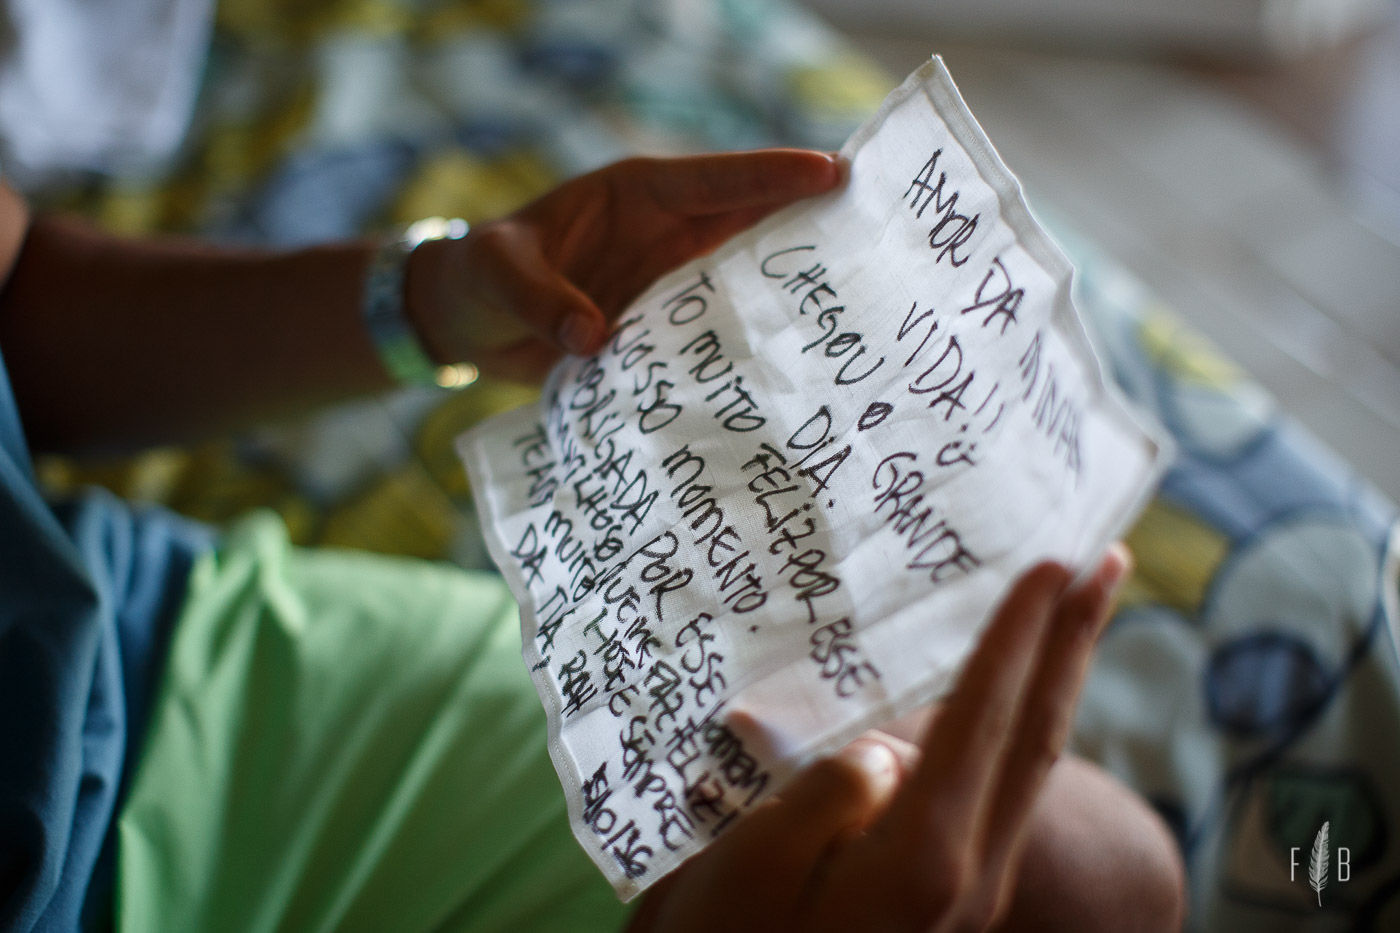 AMOR DA MINHA
VIDA!! ü
CHEGOU O GRANDE
DIA.
TO MUITO FELIZ POR ESSE
NOSSO MOMENTO.
OBRIGADA POR ESSE HOMEM
MARAVILHOSO QUE ME FAZ FELIZ!
TE AMO MUITO HOJE E SEMPRE
DA TUA,
F B